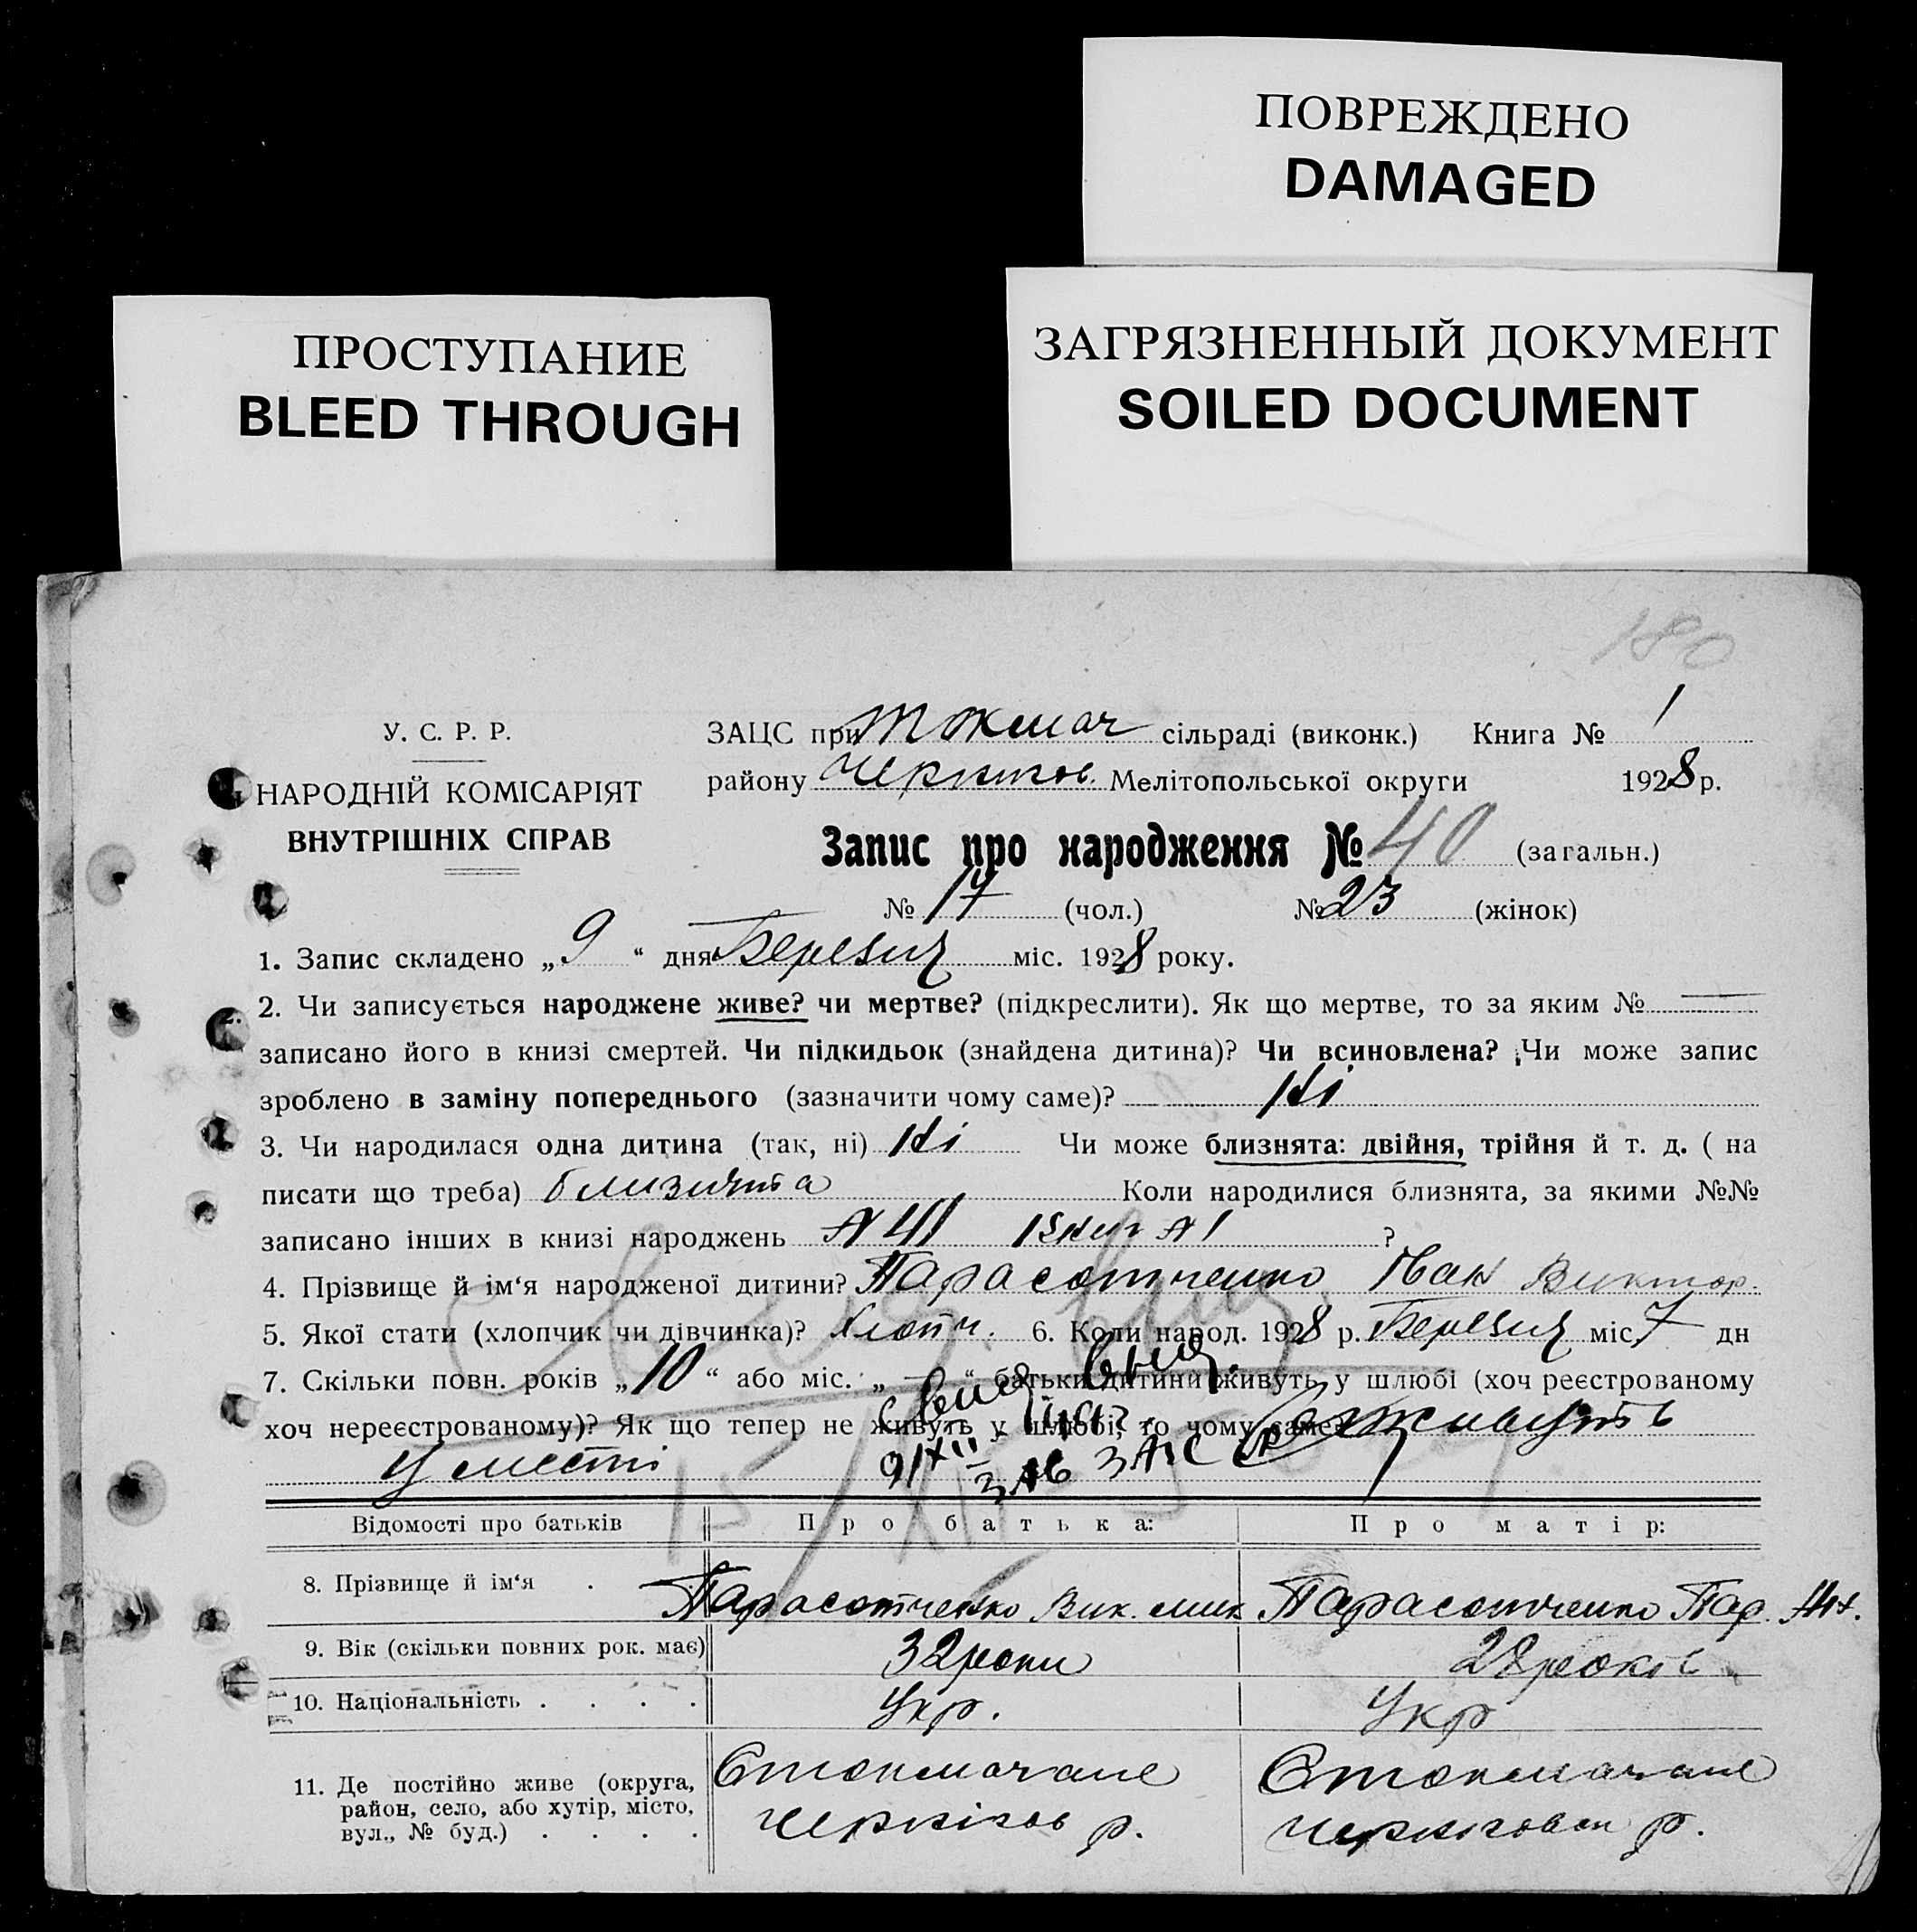 ПОВРЕЖДЕНО
DAMAGED
ПРОСТУПАНИЕ
BLEED THROUGH
ЗАГРЯЗНЕННЫЙ ДОКУМЕНТ
SOILED DOCUMENT
180
У. С. Р. Р.
НАРОДНІЙ КОМІСАРІЯТ
ВНУТРІШНІХ СПРАВ
ЗАЦС при Токмач сільраді (виконк.) Книга № 1
району Чернигов. Мелітопольської округи 1928 р.
Запис про народження № 40 (загальн.)
№ 17 (чол.) № 23 (жінок)
1. Запис складено „ 9 “ дня Березня міс. 1928 року.
2. Чи записується народжене живе? чи мертве? (підкреслити). Як що мертве, то за яким № —
записано його в книзі смертей. Чи підкидьок (знайдена дитина)? Чи всиновлена? Чи може запис
зроблено в заміну попереднього (зазначити чому саме)? Ні
3. Чи народилася одна дитина (так, ні) Ні Чи може близнята: двійня, трійня й т. д. ( на
писати що треба) близнята Коли народилися близнята, за якими №№
записано інших в книзі народжень № 41 №1 ?
4. Прізвище й ім‘я народженої дитини? Парасотченко Іван Виктор.
5. Якої стати (хлопчик чи дівчинка)? Хлопч. 6. Коли народ. 1928 р. Березня міс. 7 дн
7. Скільки повн. років „ 10 “ або міс. „ — “ батьки дитини живуть у шлюбі (хоч реєстрованому
хоч нереєстрованому)? Як що тепер не живуть у шлюбі, то чому саме? живуть
у месті
9/XII ЗАГС
Відомості про батьків Про батька: Про матір:
8. Прізвище й ім‘я . Парасотченко Вик. Мик Парасотченко Пар.
9. Вік (скільки повних рок. має) 32 роки 28 років
10. Національність . . . . Укр. Укр
11. Де постійно живе (округа, район, село, або хутір, місто, вул., № буд.) . . . .
Чернігов р. р.